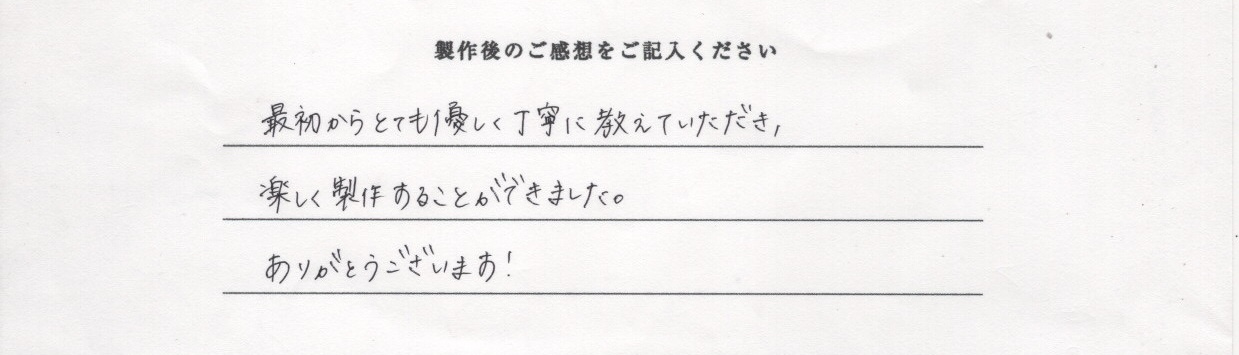 製作後のご感想をご記入ください
最初からとても優しく丁寧に教えていただき,
楽しく製作することができました。
ありがとうございます!